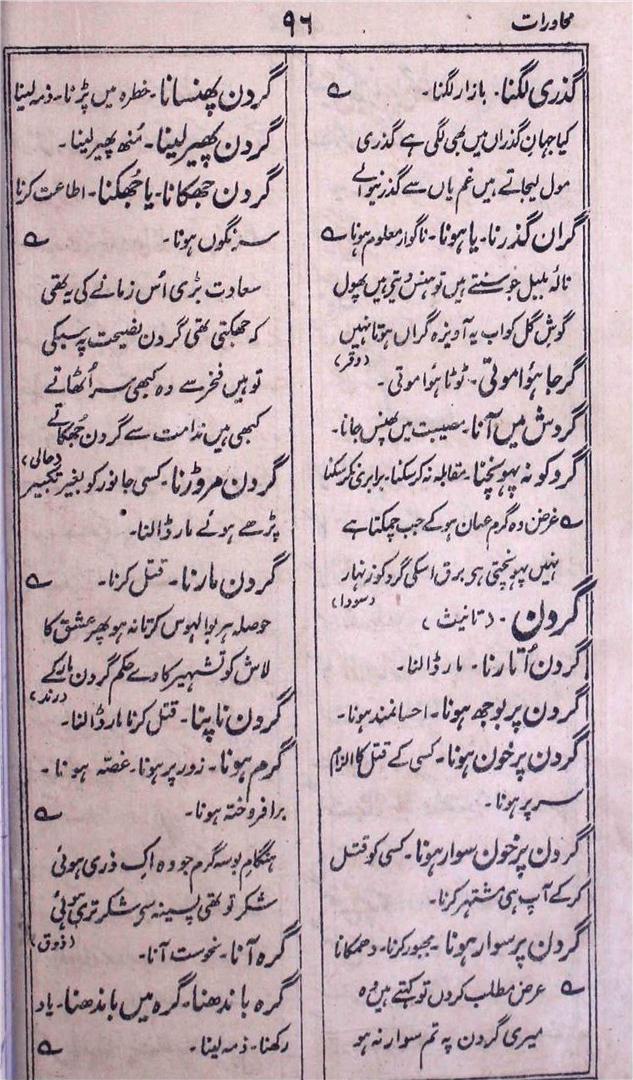 محاورات
۹۶
گذری لگنا۔ بازار لگنا۔ ؎
کیا جہانِ گذراں میں بھی لگی ہے گذری
مول لیجاتے ہیں غم یاں سے گذرنیوالے
گراں گذرنا۔ یا ہونا۔ ناگوار معلوم ہونا ؎
نالۂ بلبل جو سنتے ہیں تو ہنس دیتی ہیں پھول
گوش گل کو اب یہ آویزہ گراں ہوتا نہیں
گرجا ہوا موتی۔ ٹوٹا ہوا موتی۔
گردش میں آنا۔ مصیبت میں پھنس جانا۔
گرد کو نہ پہونچنا۔ مقابلہ نہ کرسکنا۔ برابری نہ کرسکنا
؎ غرض وہ گرم عناں ہوکے جب چمکتا ہے
نہیں پہونچتی ہی برق اسکی گرد کو زنہار
(سودا)
گردن۔ (تانیث)
گردن اُتارنا۔ مار ڈالنا۔
گردن پر بوجھ ہونا۔ احسانمند ہونا۔
گردن پر خون ہونا۔ کسی کے قتل کا الزام
سر پر ہونا۔
گردن پر خون سوار ہونا۔ کسی کو قتل
کر کے آپ ہی مشتہر کرنا۔
گردن پر سوار ہونا۔ مجبور کرنا۔ دھمکانا
؎ عرض مطلب کروں تو کہتے ہیں وہ
میری گردن پہ تم سوار نہ ہو
گردن پھنسانا۔ خطرہ میں پڑنا۔ ذمہ لینا
گردن پھیر لینا۔ مُنھ پھیر لینا۔
گردن جھکانا۔ یا جُھکنا۔ اطاعت کرنا
سرنگوں ہونا۔ ؎
سعادت بڑی اُس زمانے کی یہ تھی
کہ جھکتی تھی گردن نصیحت پہ سبکی
تو ہیں فخر سے وہ کبھی سر اُٹھاتے
کبھی ہیں ندامت سے گردن جُھکاتے
(حالی)
گردن مروڑنا۔ کسی جانور کو بغیر تکبیر
پڑھے ہوئے مار ڈالنا۔
گردن مارنا۔ قتل کرنا۔ ؎
حوصلہ ہر بوالہوس کرتا نہ ہو پھر عشق کا
لاش کو تشہیر کا دے حکم گردن مار کے
(رند)
گردن ناپنا۔ قتل کرنا مار ڈالنا۔
گرم ہونا۔ زور پر ہونا۔ غصہ ہونا۔
برافروختہ ہونا۔ ؎
ہنگامِ بوسہ گرم جو وہ اک ذری ہوئی
شکر تو تھی پسینہ سی شکر تری ہوئی
(ذوق)
گرہ آنا۔ نحوست آنا۔
گرہ باندھنا۔ گرہ میں باندھنا۔ یاد
رکھنا۔ ذمہ لینا۔ ؎